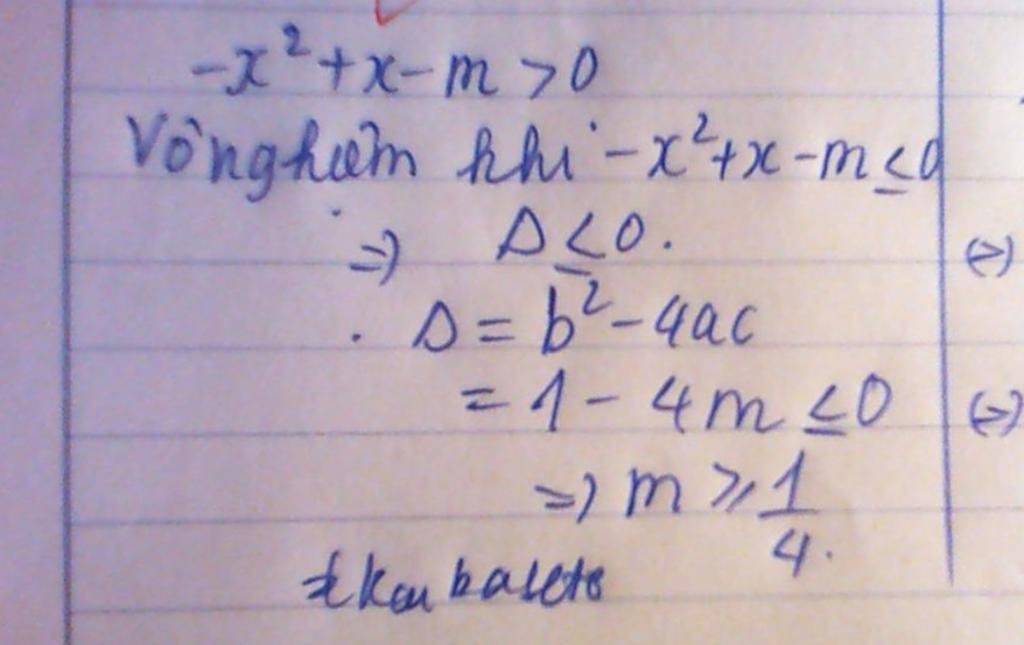 -x²+x-m>0
Vô nghiệm khi -x²+x-m≤0
=) Δ≤0. (=)
. Δ = b²-4ac
= 1 - 4m ≤0 (=)
=) m ≥ 1/4.